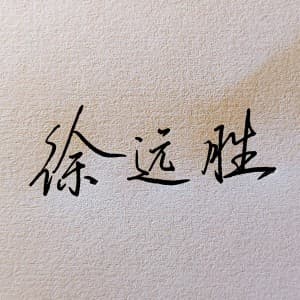 徐远胜